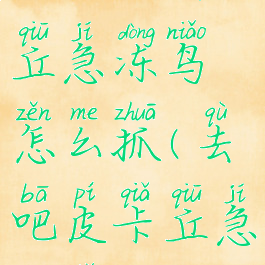 qiū jí dòng niǎo
丘急冻鸟
zěn me zhuā ( qù
怎么抓(去
bā pí qiǎ qiū jí
吧皮卡丘急